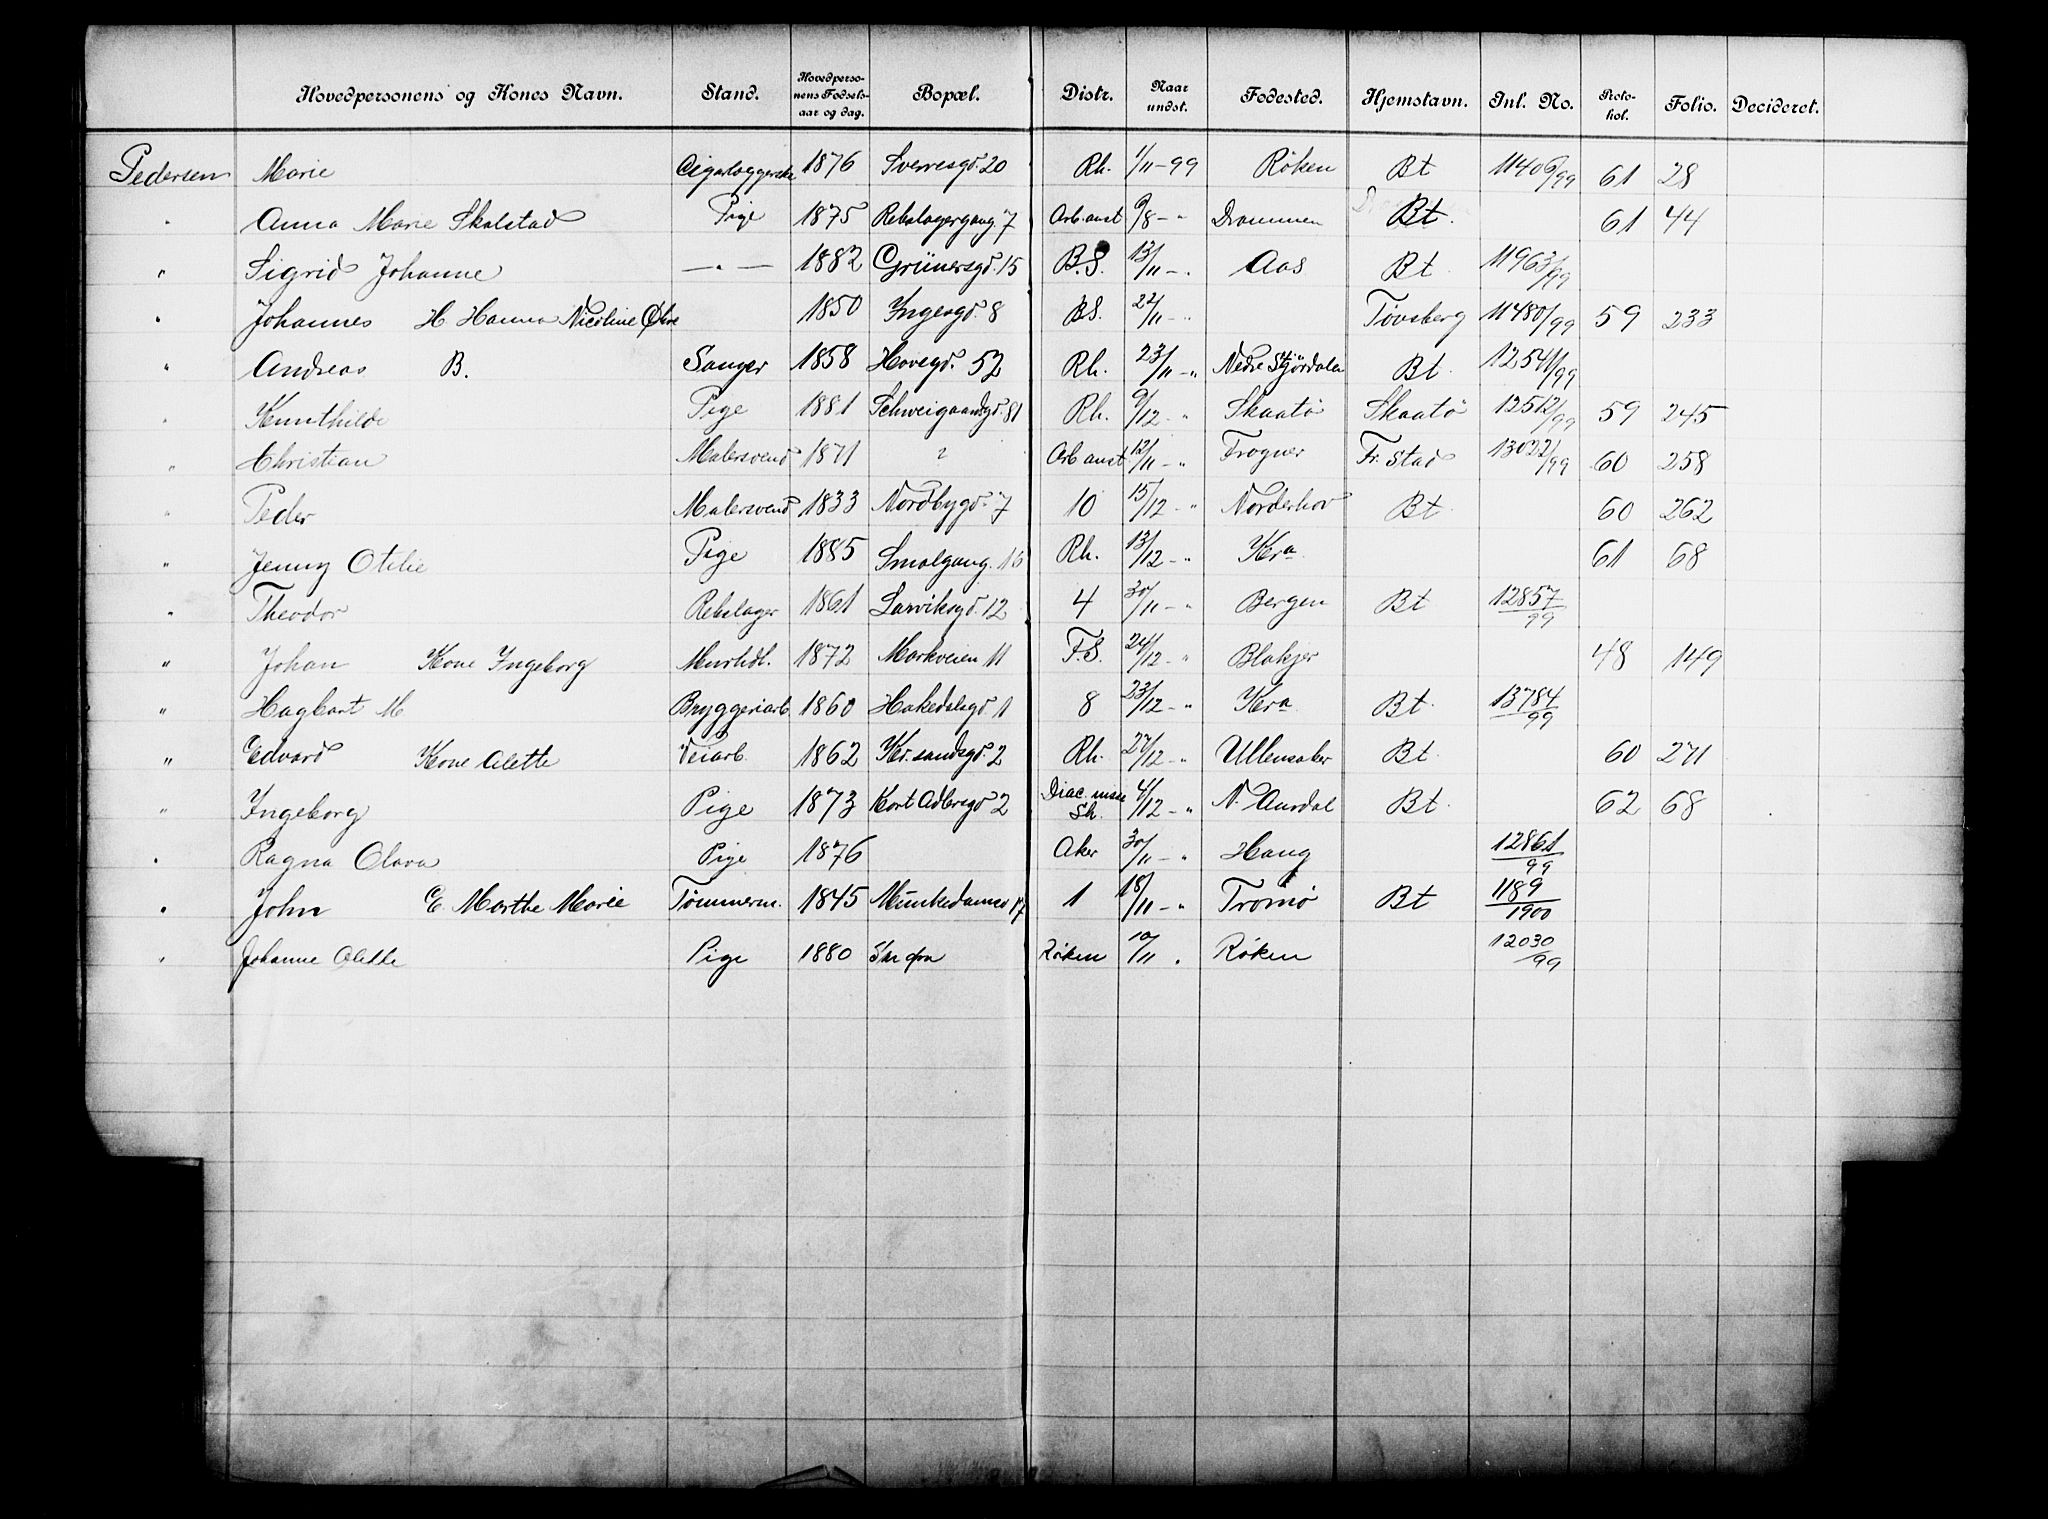 Hovedpersonens og Kones Navn. Stand. Hovedpersonens Fødselsaar og dag. Bopæl. Distr. Naar undst. Fødested. Hjemstavn. Inl. No. Protokol. Folio. Decideret.
Pedersen Marie 1876 Sverresgd. 20 Rh. 1/11-99 Røken Bt 11406/99 61 28
" Anna Marie Skalstad Pige 1875 Rebslagergang. 7 Arb.anst 9/8 - " Drammen Bt. 61 44
" Sigrid Johanne — " — 1882 Grünersgd. 15 B.S. 13/11 - " Aas Bt 11963/99
" Johannes H. Hanna Nicoline 1850 Ingesgd. 8 B.S. 22/11 - " Tøvsberg 11480/99 59 233
" Andreas B. Sanger 1858 Hovegd. 52 Rh. 23/11 - " Nedre Stjørdalen Bt. 12541/99
" Kunthilde Pige 1881 Schweigaardsgd. 81 Rh. 9/12 - " Skaatø Skaatø 12512/99 59 245
" Christian Malersvend 1871 ? Arb.anst 12/11 - " Frogner Fr.stad 13022/99 60 258
" Peder Malersvend 1833 Nordbygd. 7 10 15/12 - " Norderhov Bt. 60 262
" Jenny Otilie Pige 1885 Smalgang. 16 Rh. 13/12 - " Kra 61 68
" Theodor Rebslager 1861 Larviksgd. 12 4 30/11 - " Bergen Bt 12857/99
" Johan Kone Ingeborg Murhdl. 1872 Markveien 11 F.S. 24/12 - " Blakjer 48 149
" Hagbart M Bryggeriarb. 1860 Hakedalsgd. 1 8 23/12 - " Kra Bt. 13784/99
" Edvard Kone Alette Veiarb. 1862 Kr.sandsgd. 2 Rh. 27/12 - " Ullensaker Bt. 60 271
" Ingeborg Pige 1873 Kort Adlersgd 2 Diac. Sh. 4/12 - " N. Aurdal Bt. 62 68
" Ragna Olava Pige 1876 Aker 30/11 - " Haug 12861/99
" John E. Marthe Marie Tømmerm. 1845 Munkedamsv 17 1 18/11 - " Tromø Bt 1189/1900
" Johanne Alette Pige 1880 Røken 10/11 " Røken 12030/99